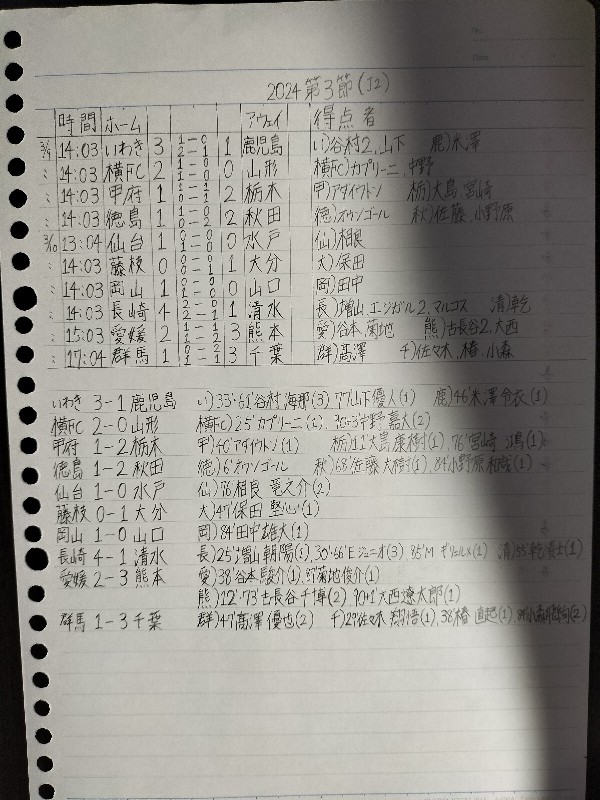 2024 第3節 (J2)
時間 ホーム アウェイ 得点者
3/9 14:03 いわき 3 1-0 2-1 1 鹿児島 い)谷村2,山下 鹿)米澤
: 14:03 横FC 2 1-0 1-0 0 山形 横FC)カプリーニ,中野
: 14:03 甲府 1 2 栃木 甲)アダイウトン 栃)大島,宮崎
: 14:03 徳島 1 1-0 0-2 2 秋田 徳) 秋)佐藤,小野原
3/10 13:04 仙台 1 0-0 1-0 0 水戸 仙)相良
: 14:03 藤枝 0 0-0 0-1 1 大分 大)保田
: 14:03 岡山 1 0-0 1-0 0 山口 岡)田中
: 14:03 長崎 4 2-0 2-1 1 清水 長)増山,エジガル2,マルコス 清)乾
: 15:03 愛媛 2 1-1 1-2 3 熊本 愛)谷本,菊地 熊)古長谷2,大西
: 17:04 群馬 1 3 千葉 群)髙澤 千)佐々木,椿,小森
いわき 3-1 鹿児島 い)33'61'谷村 海那(3),77'山下優人(1) 鹿)46'米澤令衣(1)
横FC 2-0 山形 横FC)25'カプリーニ(1), 中野 嘉大(2)
甲府 1-2 栃木 甲)40'アダイウトン(1) 栃)11'大島 康樹(1),76'宮崎 鴻(1)
徳島 1-2 秋田 徳)6' 秋)68'佐藤 大樹(1),84'小野原 和哉(1)
仙台 1-0 水戸 仙)76'相良 竜之介(2)
藤枝 0-1 大分 大)47'保田 堅心(1)
岡山 1-0 山口 岡)84'田中雄大(1)
長崎 4-1 清水 長)25'増山 朝陽(1),30'66'E・ジュニオ(3),85'M・ギリェルメ(1) 清)55'乾貴士(1)
愛媛 2-3 熊本 愛)38'谷本 駿介(1),87'菊地俊介(1)
熊)12'73'古長谷 千博(2),90+1'大西遼太郎(1)
群馬 1-3 千葉 群)47'髙澤 優也(2) 千)29'佐々木 翔悟(1),38'椿 直起(1),